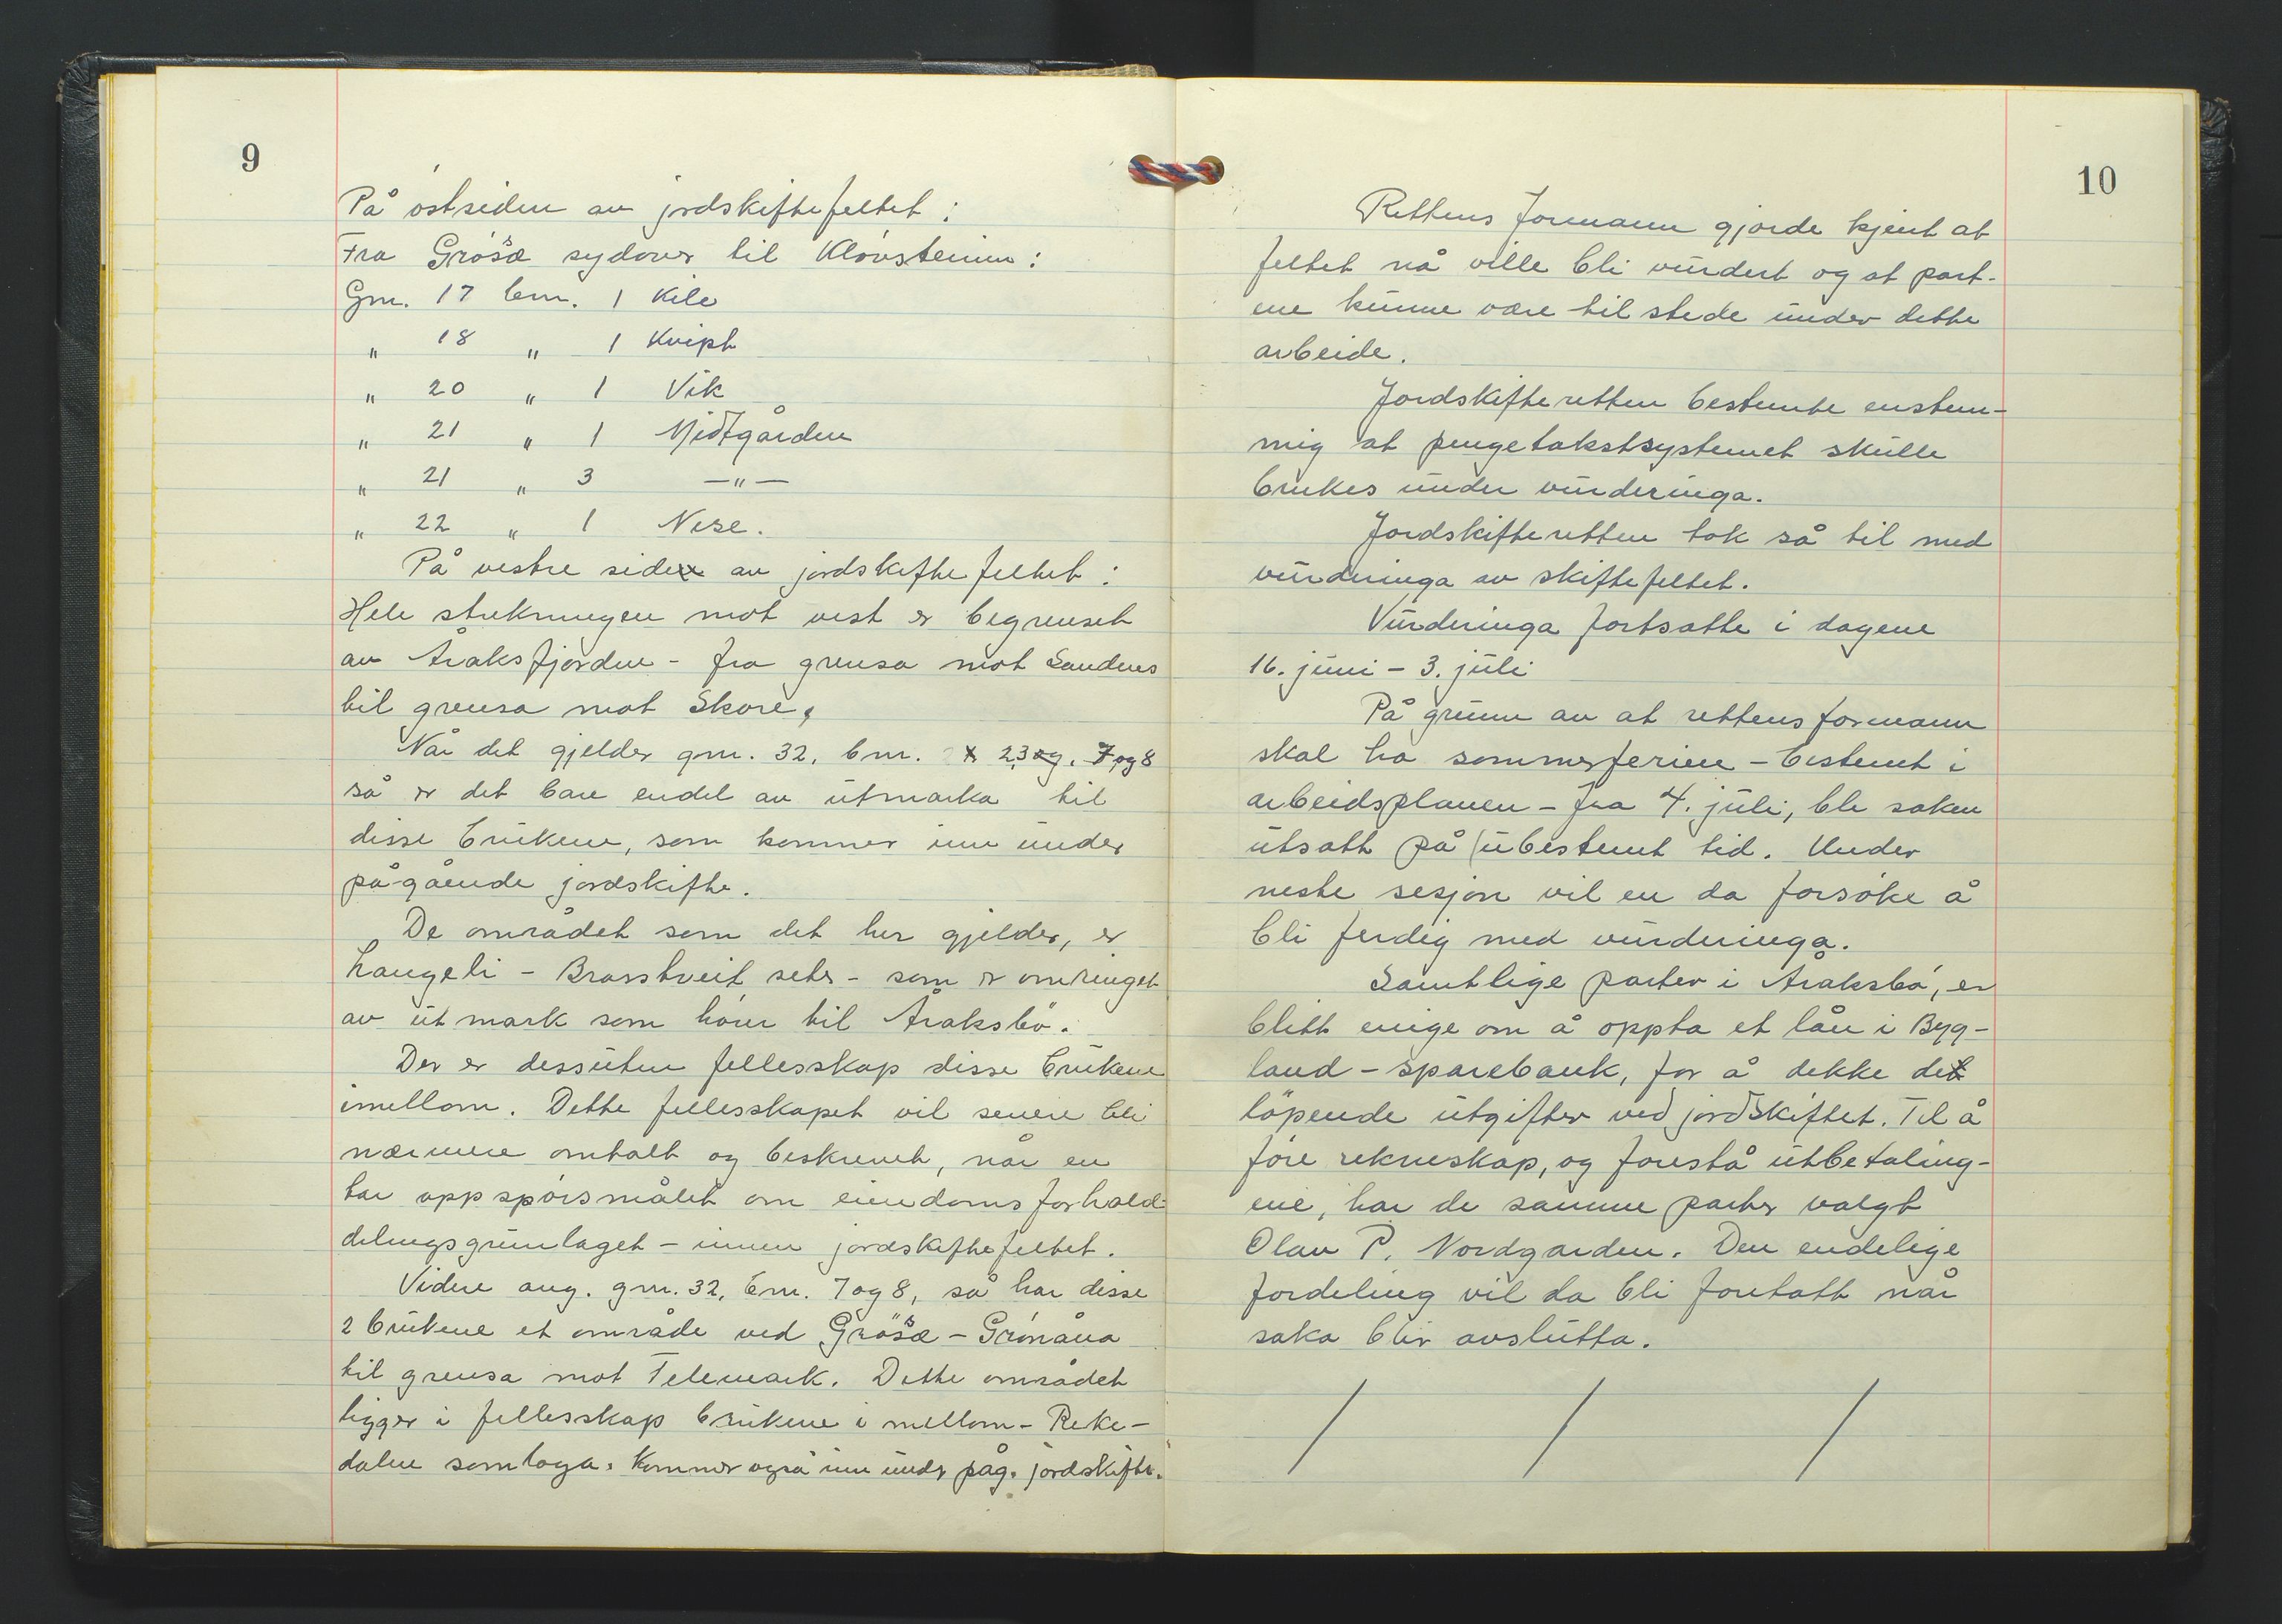 9
På östsiden av jordskiftefeltet:
Fra Grösæ sydover til Klövsteinen:
Gnr. 17 bnr. 1 Kile
" 18 " 1 Kvipt
" 20 " 1 Vik
" 21 " 1 Midtgården
" 21 " 3 —"—
" 22 " 1 Nese.
På vestre siden av jordskiftefeltet:
Hele strekningen mot vest er begrenset
av Åraksfjorden - fra grensa mot Sandnes
til grensa mot Skore.
Når det gjelder gnr. 32, bnr. 2, 3, 7 og 8
så er det bare endel av utmarka til
disse brukene, som kommer inn under
på-gående jordskifte.
De området som det her gjelder, er
Langeli - Brosstveit seter - som er omringet
av utmark som hörer til Åraksbö.
Der er dessuten fellesskap disse brukene
imellom. Dette fellesskapet vil senere bli
nærmere omtalt og beskrevet, når en
tar opp spörsmålet om eiendomsforhold-
delingsgrunlaget - innen jordskiftefeltet.
Videre ang. gnr. 32, bnr. 7 og 8, så har disse
2 brukene et område ved Grösæ - Grönåna
til grensa mot Telemark. Dette området
ligger i fellesskap brukene i mellom - Reke-
dalen somloga. Kommer også inn under påg. jordskifte.
10
Rettens formann gjorde kjent at
feltet nå ville bli vurdert og at part-
ene kunne være til stede under dette
arbeide.
Jordskifteretten bestemte enstem-
mig at pengetakstsystemet skulle
brukes under vurderinga.
Jordskifteretten tok så til med
vurderinga av skiftefeltet.
Vurderinga fortsatte i dagene
16. juni - 3. juli
På grunn av at rettens formann
skal ha sommerferien - bestemt i
arbeidsplanen - fra 4. juli, ble saken
utsatt på ubestemt tid. Under
neste sesjon vil en da forsöke å
bli ferdig med vurderinga.
Samtlige parter i Åraksbö, er
blitt enige om å oppta et lån i Byg-
land - sparebank, for å dekke de
löpende utgifter ved jordskiftet. Til å
före rekneskap, og forestå utbetaling-
ene, har de samme parter valgt
Olav P. Nordgarden. Den endelige
fordeling vil da bli foretatt når
saka blir avslutta.
/ / /